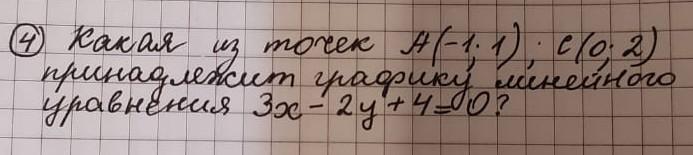 ④ Какая из точек А(-1; 1); С(0; 2)
принадлежит графику линейного
уравнения 3x - 2y + 4 = 0?